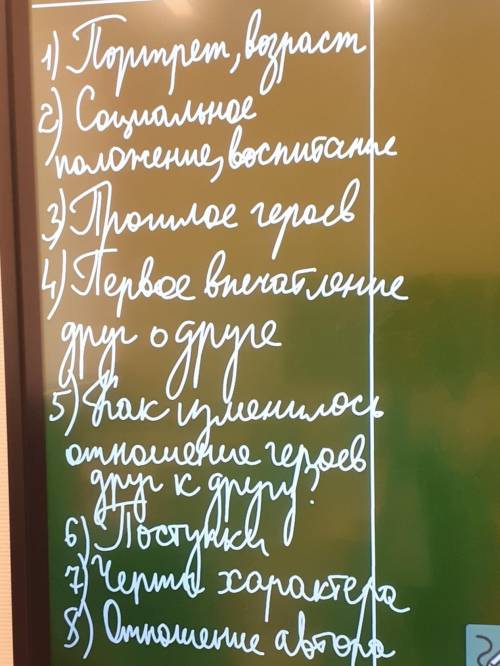 1) Портрет, возраст
2) Социальное
положение, воспитание
3) Прошлое героев
4) Первое впечатление
друг о друге
5) Как изменилось
отношение героев
друг к другу?
6) Поступки
7) Черты характера
8) Отношение автора